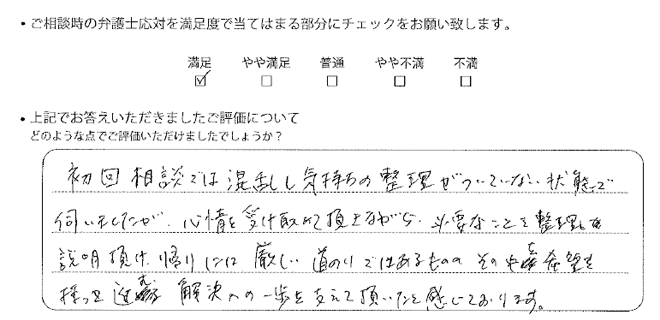 ・ご相談時の弁護士応対を満足度で当てはまる部分にチェックをお願い致します。
満足 やや満足 普通 やや不満 不満
・上記でお答えいただきましたご評価について
どのような点でご評価いただけましたでしょうか？
初回相談では混乱し気持ちの整理がついていない状態で
伺いましたが、心情を受け取めて頂きながら、必要なことを整理して
説明頂け、帰りには厳しい道のりではあるものの その中 希望を
持って 解決への一歩を支えて頂いたと感じております。